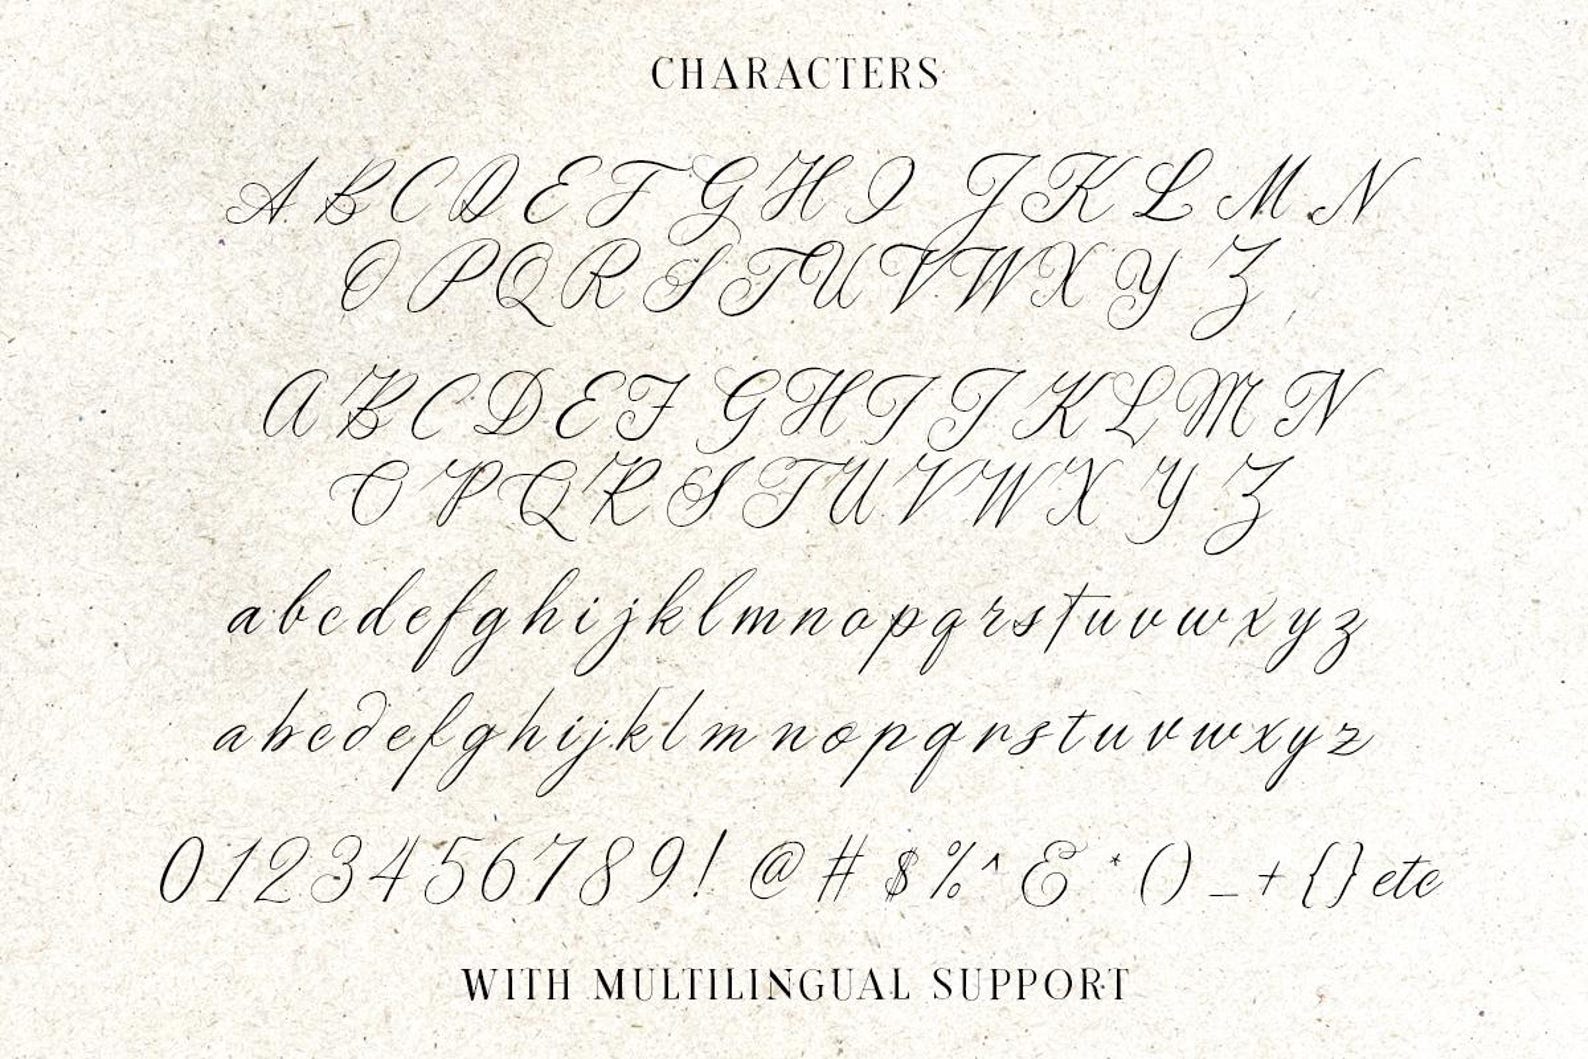 CHARACTERS
A B C D E F G H I J K L M N
O P Q R S T U V W X Y Z
A B C D E F G H I J K L M N
O P Q R S T U V W X Y Z
a b c d e f g h i j k l m n o p q r s t u v w x y z
a b c d e f g h i j k l m n o p q r s t u v w x y z
0 1 2 3 4 5 6 7 8 9 ! @ # $ % ^ & * ( ) _ + { } etc
WITH MULTILINGUAL SUPPORT